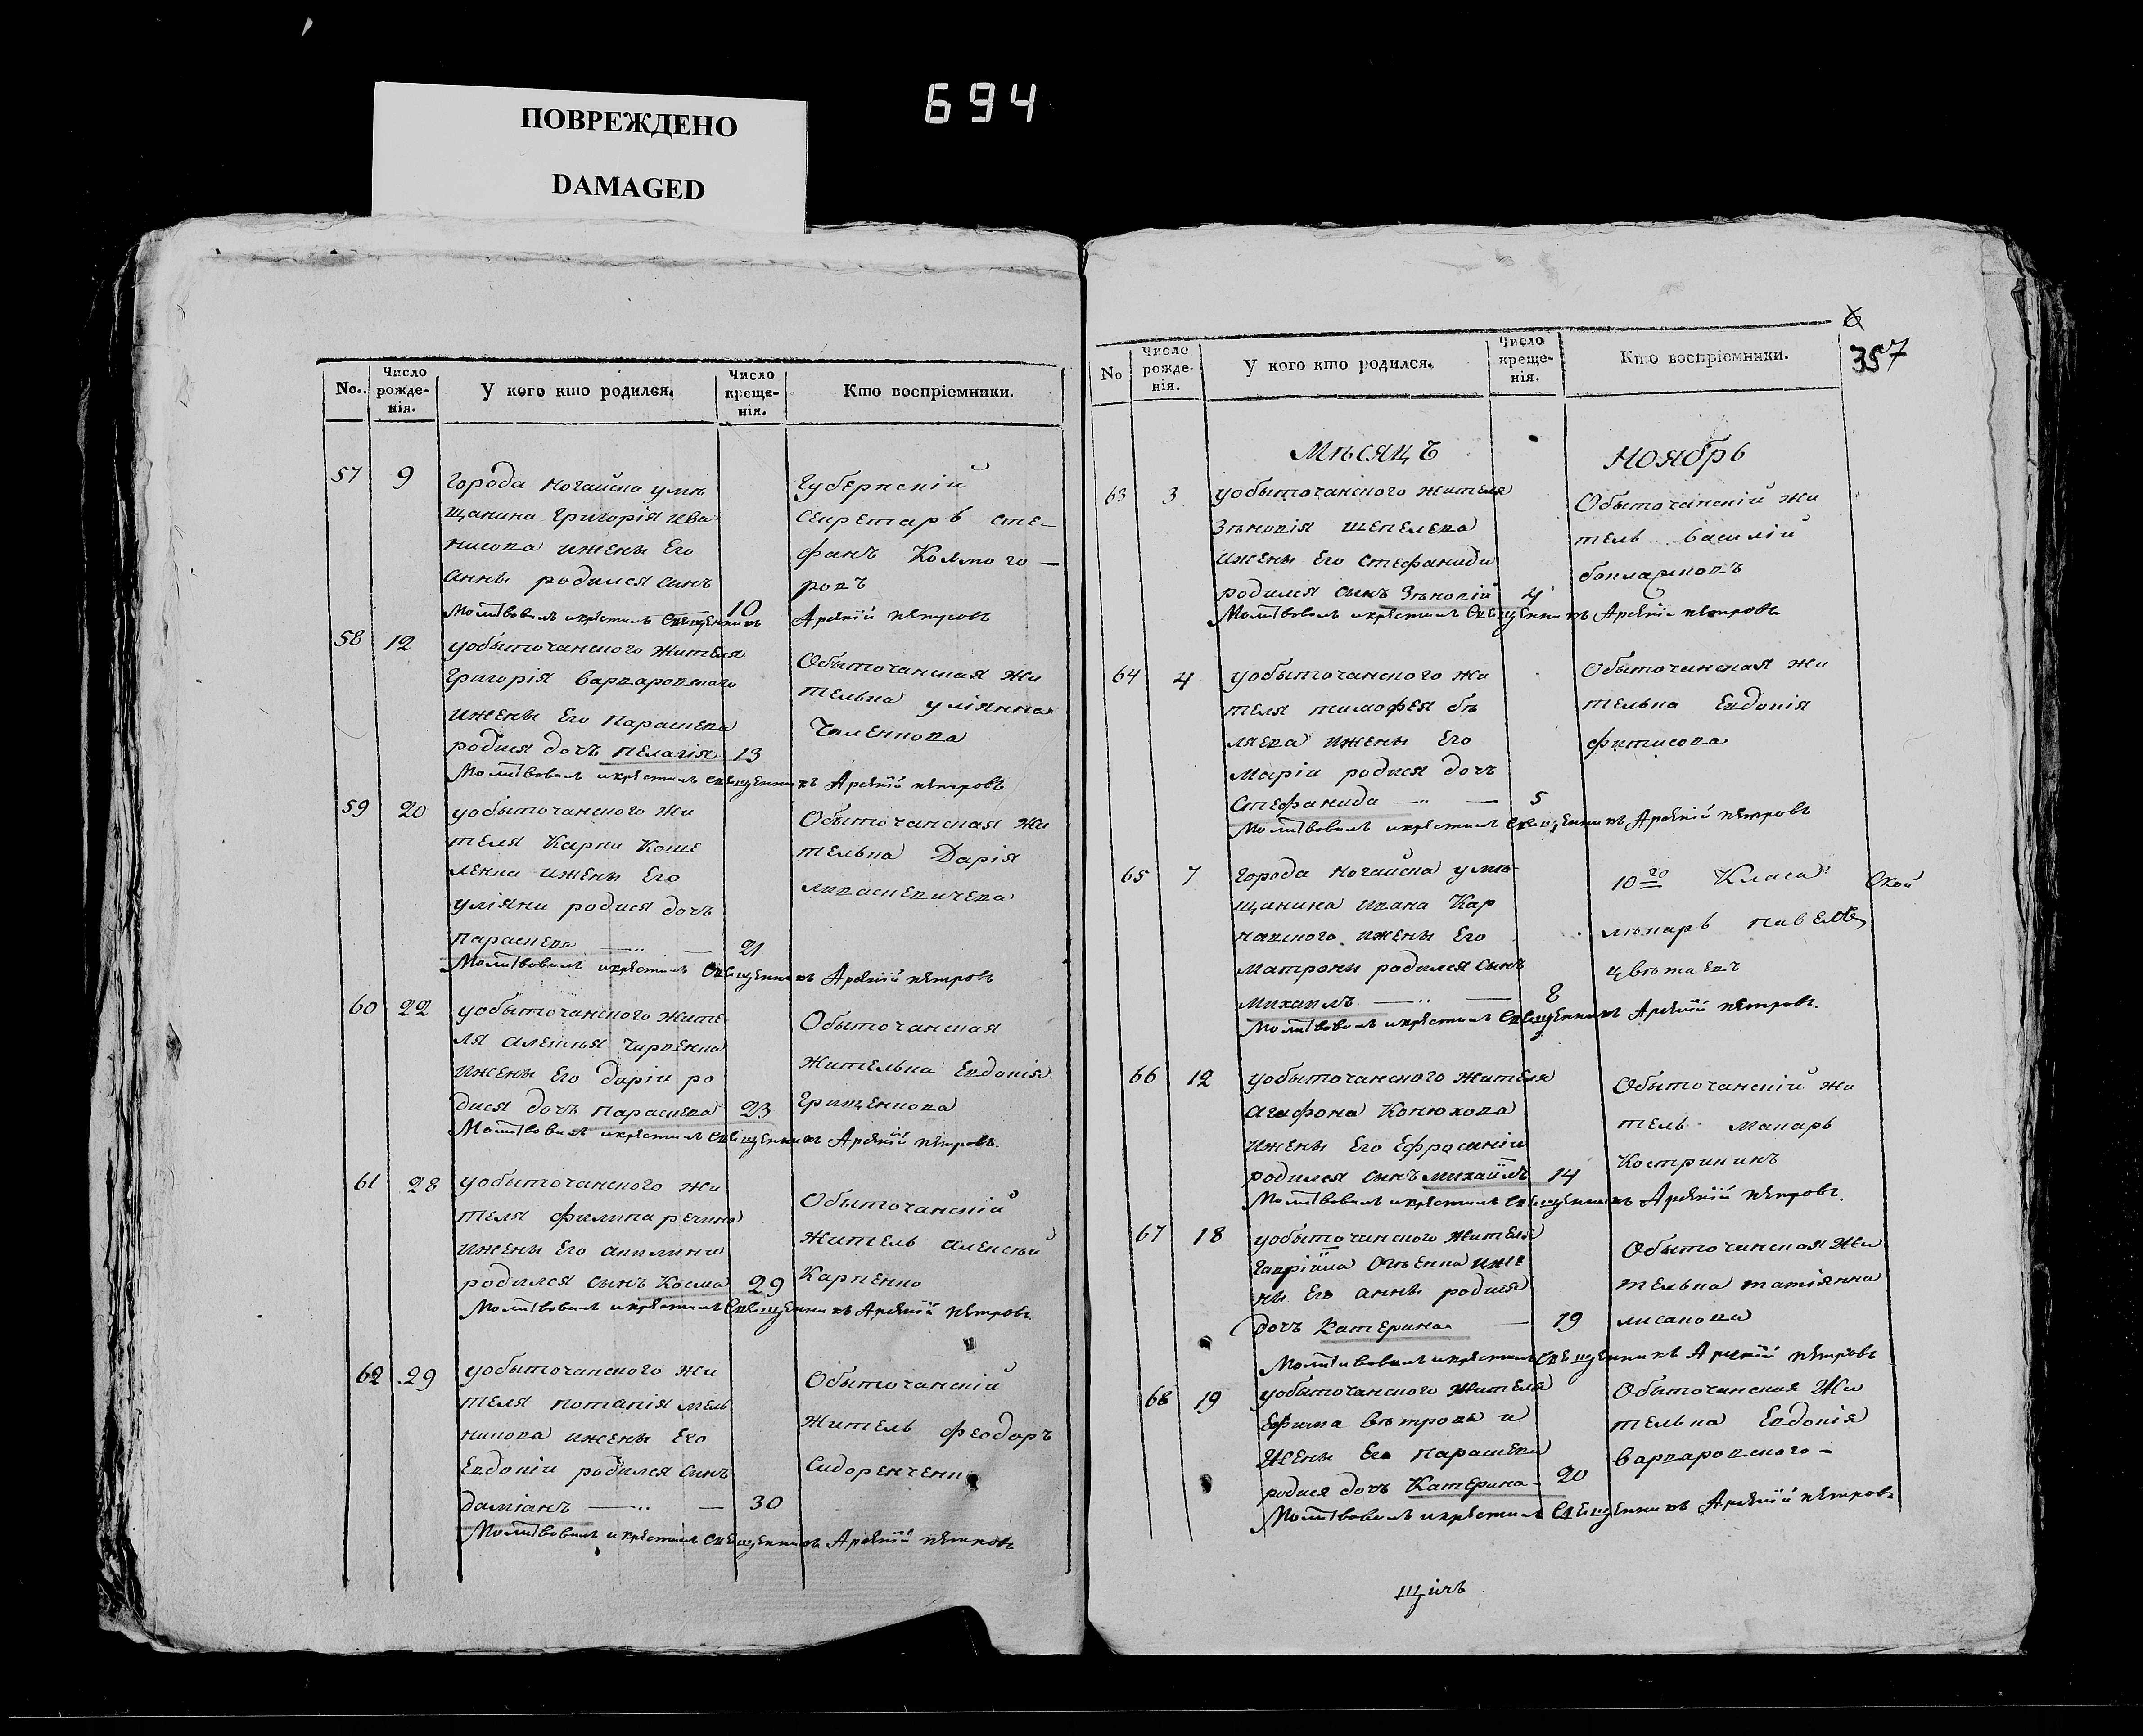 ПОВРЕЖДЕНО
DAMAGED
694
No.
Число рожде-нія.
У кого кто родился.
Число креще-нія.
Кто воспріемники.
57 9 Города Ногайска умѣ
щанина Григорія Ива
ижены Его
Анны родился сынъ
10
Губернскій
Секретарь Сте-
фанъ Колмого-
ровъ
Молитвовалъ икрестилъ Священникъ Арсеній Петровъ
58 12 уобыточанского жителя
Григорія Варваровского
ижены Его Параскева
родися дочъ Пелагія 13
Обыточанская жи
телька Уліянна
Чаленкова
Молитвовалъ икрестилъ Священникъ Арсеній Петровъ
59 20 уобыточанского жи
теля Карпа Коше
ленка ижены Его
Уліяни родися дочъ
Параскева 21
Обыточанская жи
телька Дарія
Молитвовалъ икрестилъ Священникъ Арсеній Петровъ
60 22 уобыточанского жите
ля Алексѣя Чирвенка
ижены Его Даріи ро
дися дочъ Параскева 23
Обыточанская
жителька Евдокія
Грищенкова
Молитвовалъ икрестилъ Священникъ Арсеній Петровъ.
61 28 уобыточанского жи
теля Филипа Речина
ижены Его Акилини
родился сынъ Косма 29
Обыточанскій
житель Алексѣй
Карпенко
Молитвовалъ икрестилъ Священникъ Арсеній Петровъ.
62 29 уобыточанского жи
теля Потапія Мель
никова ижены Его
Евдокіи родился сынъ
Даміанъ 30
Обыточанскій
житель Феодоръ
Сидоренченко
Молитвовалъ икрестилъ Священникъ Арсеній Петровъ
6
357
No
Число рожде-нія.
У кого кто родился.
Число креще-нія.
Кто воспріемники.
Мѣсяцъ Ноябрь
63 3 уобыточанского жителя
Зѣновія Щепелева
ижены Его Стефаниди
родился сынъ Зѣновій 4
Обыточанскій жи
тель Василій
Молитвовалъ икрестилъ Священникъ Арсеній Петровъ
64 4 уобыточанского жи
теля Тимофея Бѣ
ляева ижены Его
Маріи родися дочъ
Стефанида 5
Обыточанская жи
телька Евдокія
Фитисова
Молитвовалъ икрестилъ Священникъ Арсеній Петровъ
65 7 Города Ногайска умѣ-
щанина Ивана Кар
навского ижены Его
Матрони родился сынъ
Михаилъ 8
10го Класа
лѣкарь Павелъ
Цвѣтаевъ
Молитвовалъ икрестилъ Священникъ Арсеній Петровъ.
66 12 уобыточанского жителя
Агафона Конюхова
ижены Его Ефрасиніи
родился сынъ Михаіилъ 14
Обыточанскій жи
тель Макарь
Кострикинъ
Молитвовалъ икрестилъ Священникъ Арсеній Петровъ.
67 18 уобыточанского жителя
Гавріила Огѣенка иже
ны Его Анны родися
дочъ Катерина 19
Обыточанская жи
телька Татіянна
Лисакова
Молитвовалъ икрестилъ Священникъ Арсеній Петровъ
68 19 уобыточанского жителя
Ефима Вѣтрова и
жены Его Параскева
родися дочъ Катерина 20
Обыточанская жи
телька Евдокія
Варваровского
Молитвовалъ икрестилъ Священникъ Арсеній Петровъ